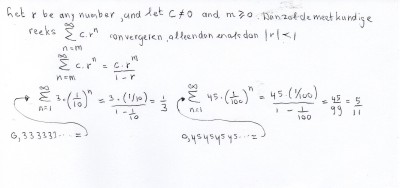 Let r be any number, and let C ≠ 0 and m ≥ 0. Dan zal de meetkundige
reeks ∑_{n=m}^{∞} c.r^n convergeren, alleen dan en als dan |r| < 1
∑_{n=m}^{∞} c.r^n = c.r^m / (1 - r)
∑_{n=1}^{∞} 3.(1/10)^n = 3.(1/10) / (1 - 1/10) = 1/3 ∑_{n=1}^{∞} 45.(1/100)^n = 45.(1/100) / (1 - 1/100) = 45/99 = 5/11
0,333333... = 0,45454545... =